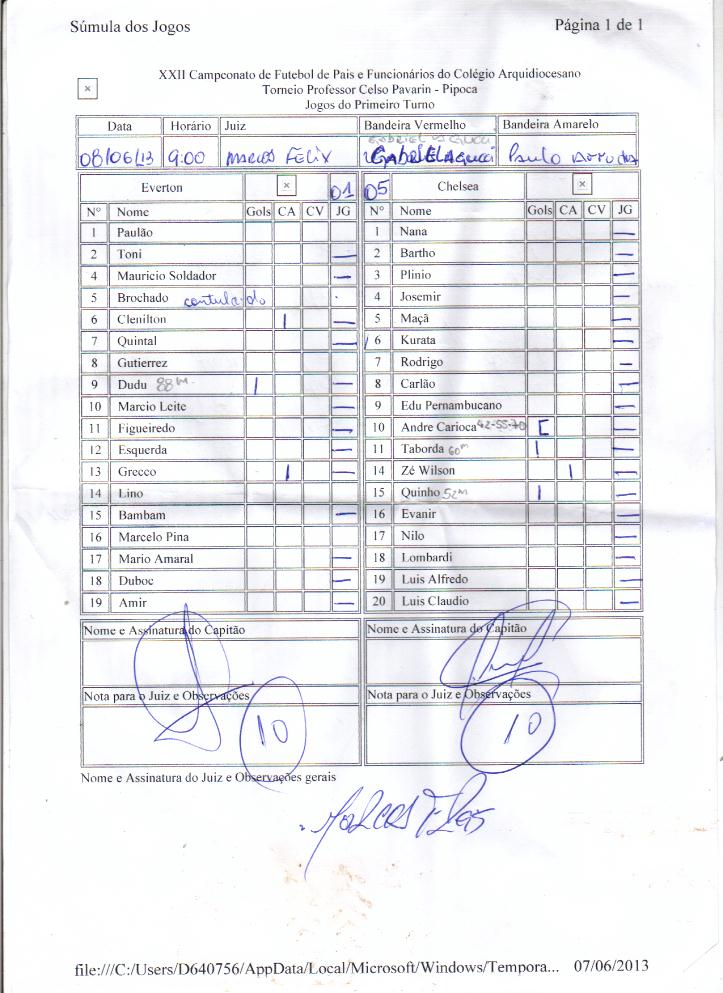 Súmula dos Jogos Página 1 de 1
XXII Campeonato de Futebol de Pais e Funcionários do Colégio Arquidiocesano
Torneio Professor Celso Pavarin - Pipoca
Jogos do Primeiro Turno
Data Horário Juiz Bandeira Vermelho Bandeira Amarelo
08/06/13 9:00 MARCOS FELIX Paulo
Everton 01 05 Chelsea
Nº Nome Gols CA CV JG Nº Nome Gols CA CV JG
1 Paulão 1 Nana
2 Toni 2 Bartho
4 Mauricio Soldador 3 Plinio
5 Brochado contundido 4 Josemir
6 Clenilton 5 Maçã
7 Quintal 6 Kurata
8 Gutierrez 7 Rodrigo
9 Dudu 88M 8 Carlão
10 Marcio Leite 9 Edu Pernambucano
11 Figueiredo 10 Andre Carioca 42-55-70
12 Esquerda 11 Taborda 60M
13 Grecco 14 Zé Wilson
14 Lino 15 Quinho 52M
15 Bambam 16 Evanir
16 Marcelo Pina 17 Nilo
17 Mario Amaral 18 Lombardi
18 Duboc 19 Luis Alfredo
19 Amir 20 Luis Claudio
Nome e Assinatura do Capitão Nome e Assinatura do Capitão
Nota para o Juiz e Observações Nota para o Juiz e Observações
10 10
Nome e Assinatura do Juiz e Observações gerais
file:///C:/Users/D640756/AppData/Local/Microsoft/Windows/Tempora... 07/06/2013